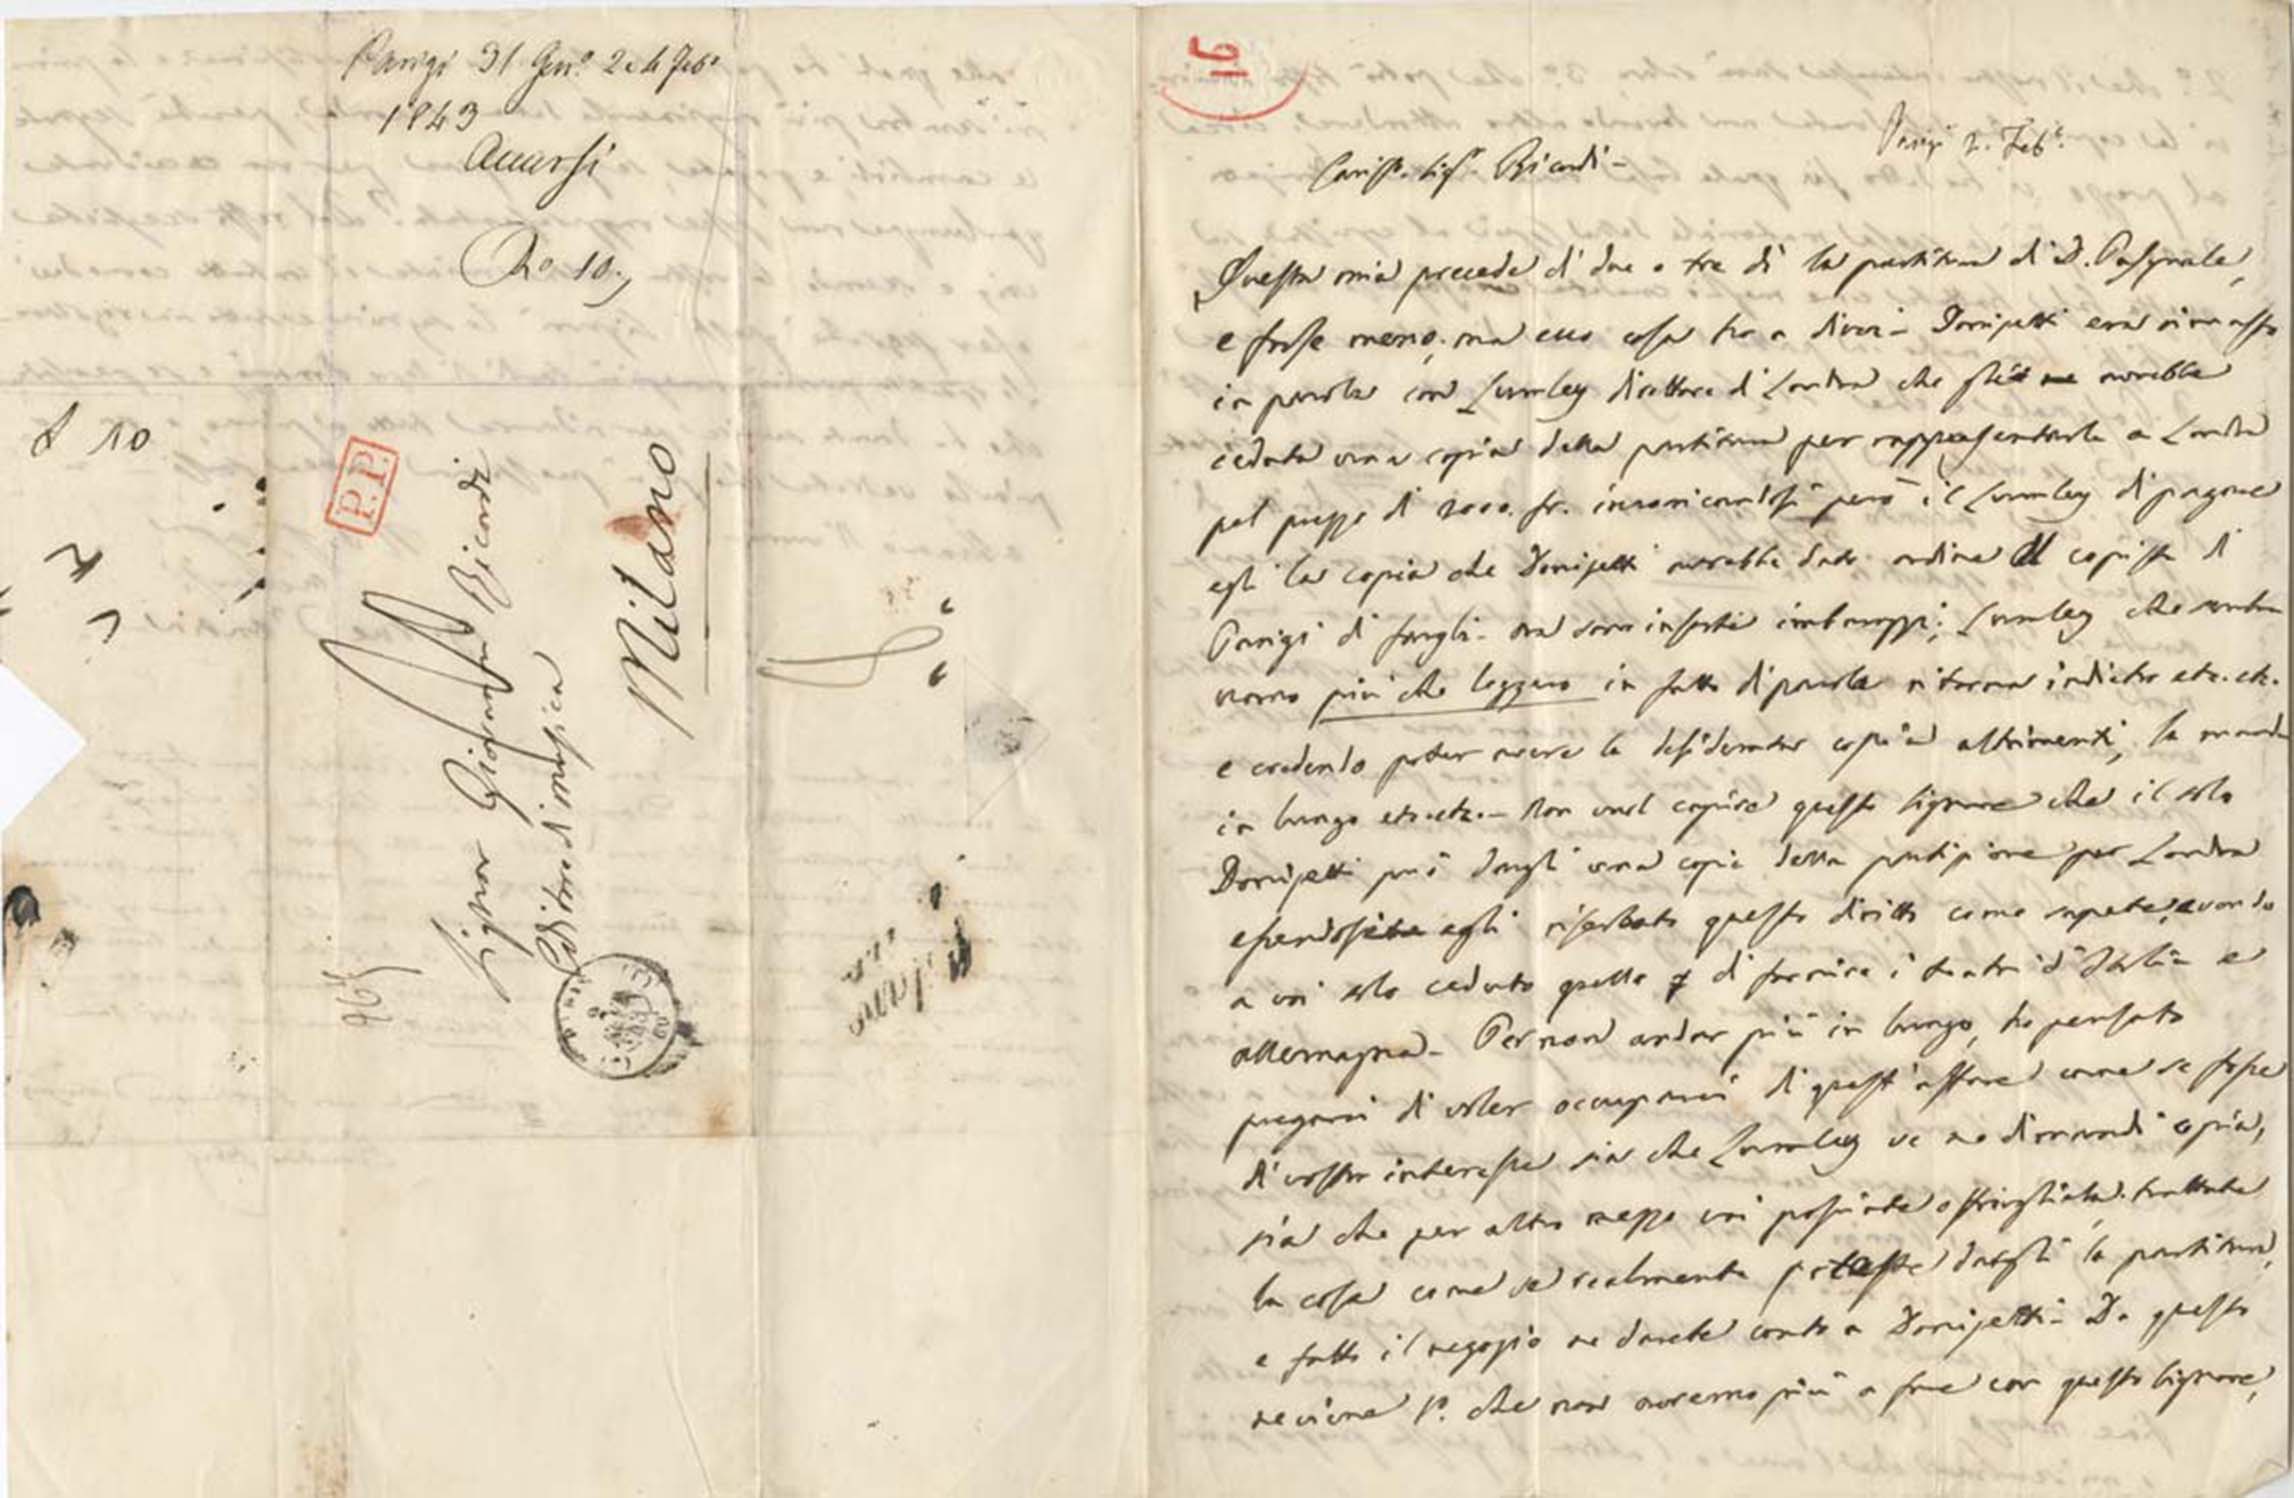 Parigi 31 Genº 2 e 4 Febº
1843
Accursi
Rº 10.
10
P.P.
Signor Giovanni Ricordi
Editore di musica
Milano
16
Parigi 2. Febº
Cariss. Sigr. Ricordi -
Questa mia precede di due o tre dì la partitura di D. Pasquale,
e forse meno; ma ecco cosa ho a dirvi - Donizetti era rimasto
in parola con Lumley direttore di Londra che gliene avrebbe
ceduta una copia della partitura per rappresentarla a Londra
pel prezzo di 2000. fr. incaricandosi però il Lumley di pagare
egli la copia che Donizetti avrebbe dato ordine al copista di
Parigi di fargli - ora sono insorti imbarazzi; Lumley che sembra
uomo più che leggero in fatto di parola ritorna indietro etc. etc.
e credendo poter avere la desiderata copia altrimenti, la manda
in lungo etc. etc. - Non vuol capire questo signore che il solo
Donizetti può dargli una copia della partizione per Londra
essendosi egli riserbato questo diritto come sapete, avendo
a voi solo ceduto quello di fornire i teatri d'Italia e
allemagna - Per non andar più in lungo, ho pensato
pregarvi di voler occuparvi di quest'affare come se fosse
di vostro interesse sia che Lumley ve ne dimandi copia,
sia che per altro mezzo voi possiate offrirgliela. trattate
la cosa come se realmente poteste dargli la partitura,
e fatto il negozio ne darete conto a Donizetti - Da questo
ne viene 1º. che non avremo più a fare con questo signore,